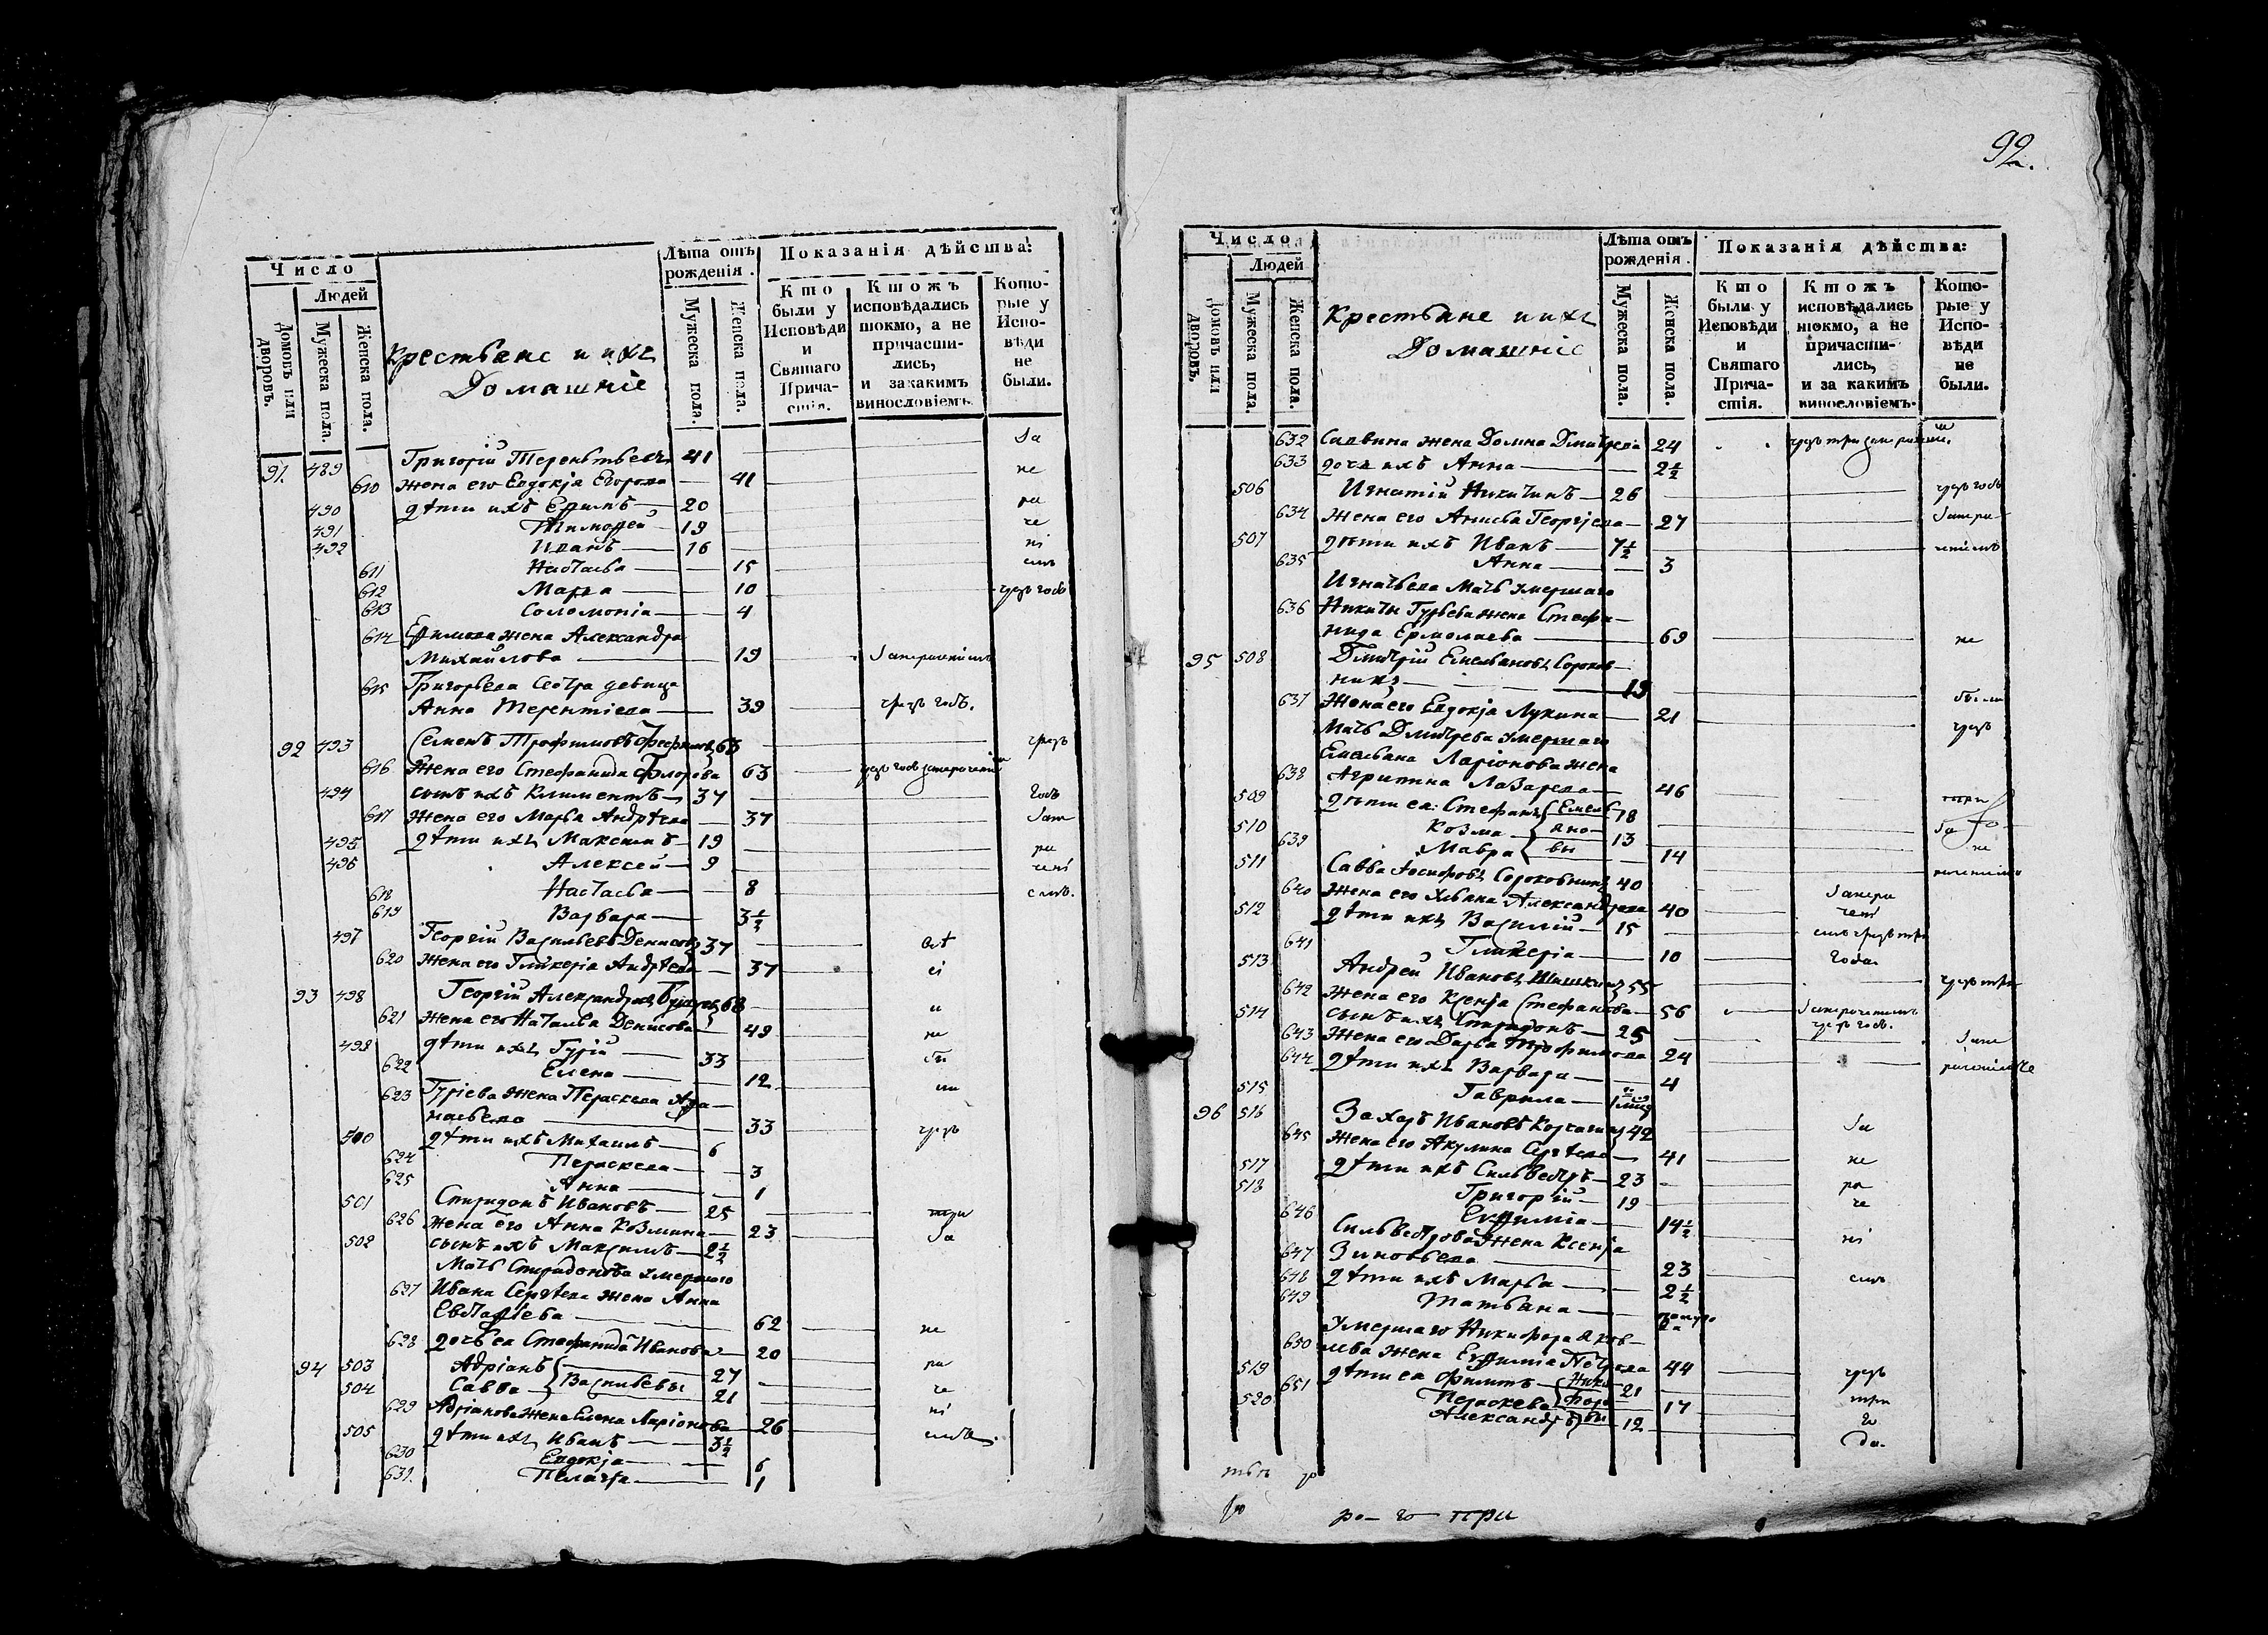 92.
Число
Людей
Домовъ или дворовъ.
Мужеска пола.
Женска пола.
Крестьяне и ихъ
Домашніе
Лѣта отъ рожденія.
Мужеска пола.
Женска пола.
Показанія дѣйства:
Кто были у Исповѣди и Святаго Причастія.
Ктожъ исповѣдались токмо, а не причастились, и за какимъ винословіемъ.
Которые у Исповѣди не были.
91. 489 Григорій Терентьевъ 41 За
610 жена его Евдокія Егорова 41 не
490 дѣти ихъ Ефимъ 20 ра
491 Тимофей 19 че
492 Иванъ 16 ні
611 Настасья 15 емъ
612 Марѳа 10 чрезъ годъ
613 Соломонія 4
614 Ефимова жена Александра
Михайлова 19 За нераченіемъ
615 Григорьева Сестра девица
Анна Терентіева 39 чрезъ годъ.
92 493 Семенъ Трофимовъ 63 чрезъ
616 Жена его Стефанида Флорова 63 чрезъ годъ за нераченіемъ
494 сынъ ихъ Климентъ 37 годъ
617 Жена его Марья Андрѣева 37 Зане
495 дѣти ихъ Максимъ 19 ра
496 Алексей 9 чені
618 Настасья 8 емъ.
619 Варвара 3½
497 Георгій Васильевъ Денисовъ 37 всѣ
620 Жена его Гликерія Андрѣева 37 сі
93 498 Георгій Александровъ 68 и
621 Жена его Наталья Денисова 49 не
499 дѣти ихъ Гурій 33 бы
622 Елена 12 ли
623 Гуріева Жена Параскева Афа-
насьева 33
500 дѣти ихъ Михаилъ 6 чрезъ
624 Параскева 3
625 Анна 1
501 Спиридонъ Ивановъ 25 три
626 Жена его Анна Козмина 23 го
502 сынъ ихъ Максимъ 2½
Мать Спиридонова умершаго
627 Ивана Сергѣева жена Анна
Евстафіева 62
628 дочь ея Стефанида Иванова 20 не
94 503 Адріанъ 27 ра
504 Савва } Васильевы 21 че
629 Адріанова Жена Елена Ларіонова 26 ні
505 дѣти ихъ Иванъ 3½ емъ.
630 Евдокія 6
631. Пелагія 1
Число
Людей
Домовъ или дворовъ.
Мужеска пола.
Женска пола.
Крестьяне и ихъ
Домашніе
Лѣта отъ рожденія.
Мужеска пола.
Женска пола.
Показанія дѣйства:
Кто были у Исповѣди и Святаго Причастія.
Ктожъ исповѣдались токмо, а не причастились, и за какимъ винословіемъ.
Которые у Исповѣди не были.
632 Саввина жена Домна Дмитрева 24
633 дочь ихъ Анна 2½
506 Игнатій Никитинъ 26 чрезъ годъ
634 Жена его Анисья Георгіева 27 Занера
507 дѣти ихъ Иванъ 7½ ченіемъ
635 Анна 3
Игнатьева Мать умершаго
636 Никиты Гурьева жена Стефа-
нида Ермолаева 69 не
95 508 Дмитрій Емельяновъ Сороков-
никъ 19
637 Жена его Евдокія Лукина 21 были
Мать Дмитрева умершаго чрезъ
Емельяна Ларіонова жена
638 Агрипина Лазарева 46
509 дѣти ея: Стефанъ { Емель 18 три
510 Козма { яно- 13 го
639 Мавра { вы 14 не
511 Савва Іосифовъ Сороковникъ 40 рачениемъ
640 Жена его Ульяна Александрова 40 Занера
512 дѣти ихъ Василій 15 чені
641 Гликерія 10 емъ чрезъ три года.
513 Андрей Ивановъ Шишкинъ 55 чрезъ три
642 Жена его Ксенія Стефанова 56 Занераченіемъ чрезъ годъ.
514 сынъ ихъ Спиридонъ 25
643 Жена его Дарья Трофимова 24 Зане
644 дѣти ихъ Варвара 4 раченіемъ
515 Гаврила
96 516 Захаръ Ивановъ Корчагинъ 42 За
645 Жена его Акулина Сергѣева 41 не
517 дѣти ихъ Сильвестръ 23 ра
518 Григорій 19 че
646 Евфимія 14½ ні
Сильвестрова Жена Ксенія
647 Зиновьева 23 емъ
648 дѣти ихъ Марья 2½
649 Татьяна
Умершаго Никифора Яков-
650 лева жена Евфимія Петрова 44 чрезъ
519 дѣти ея Филипъ { Ники 21 три
651 Параскева { форо 17 го
520 Александръ { вы 12 да.
ро- го три